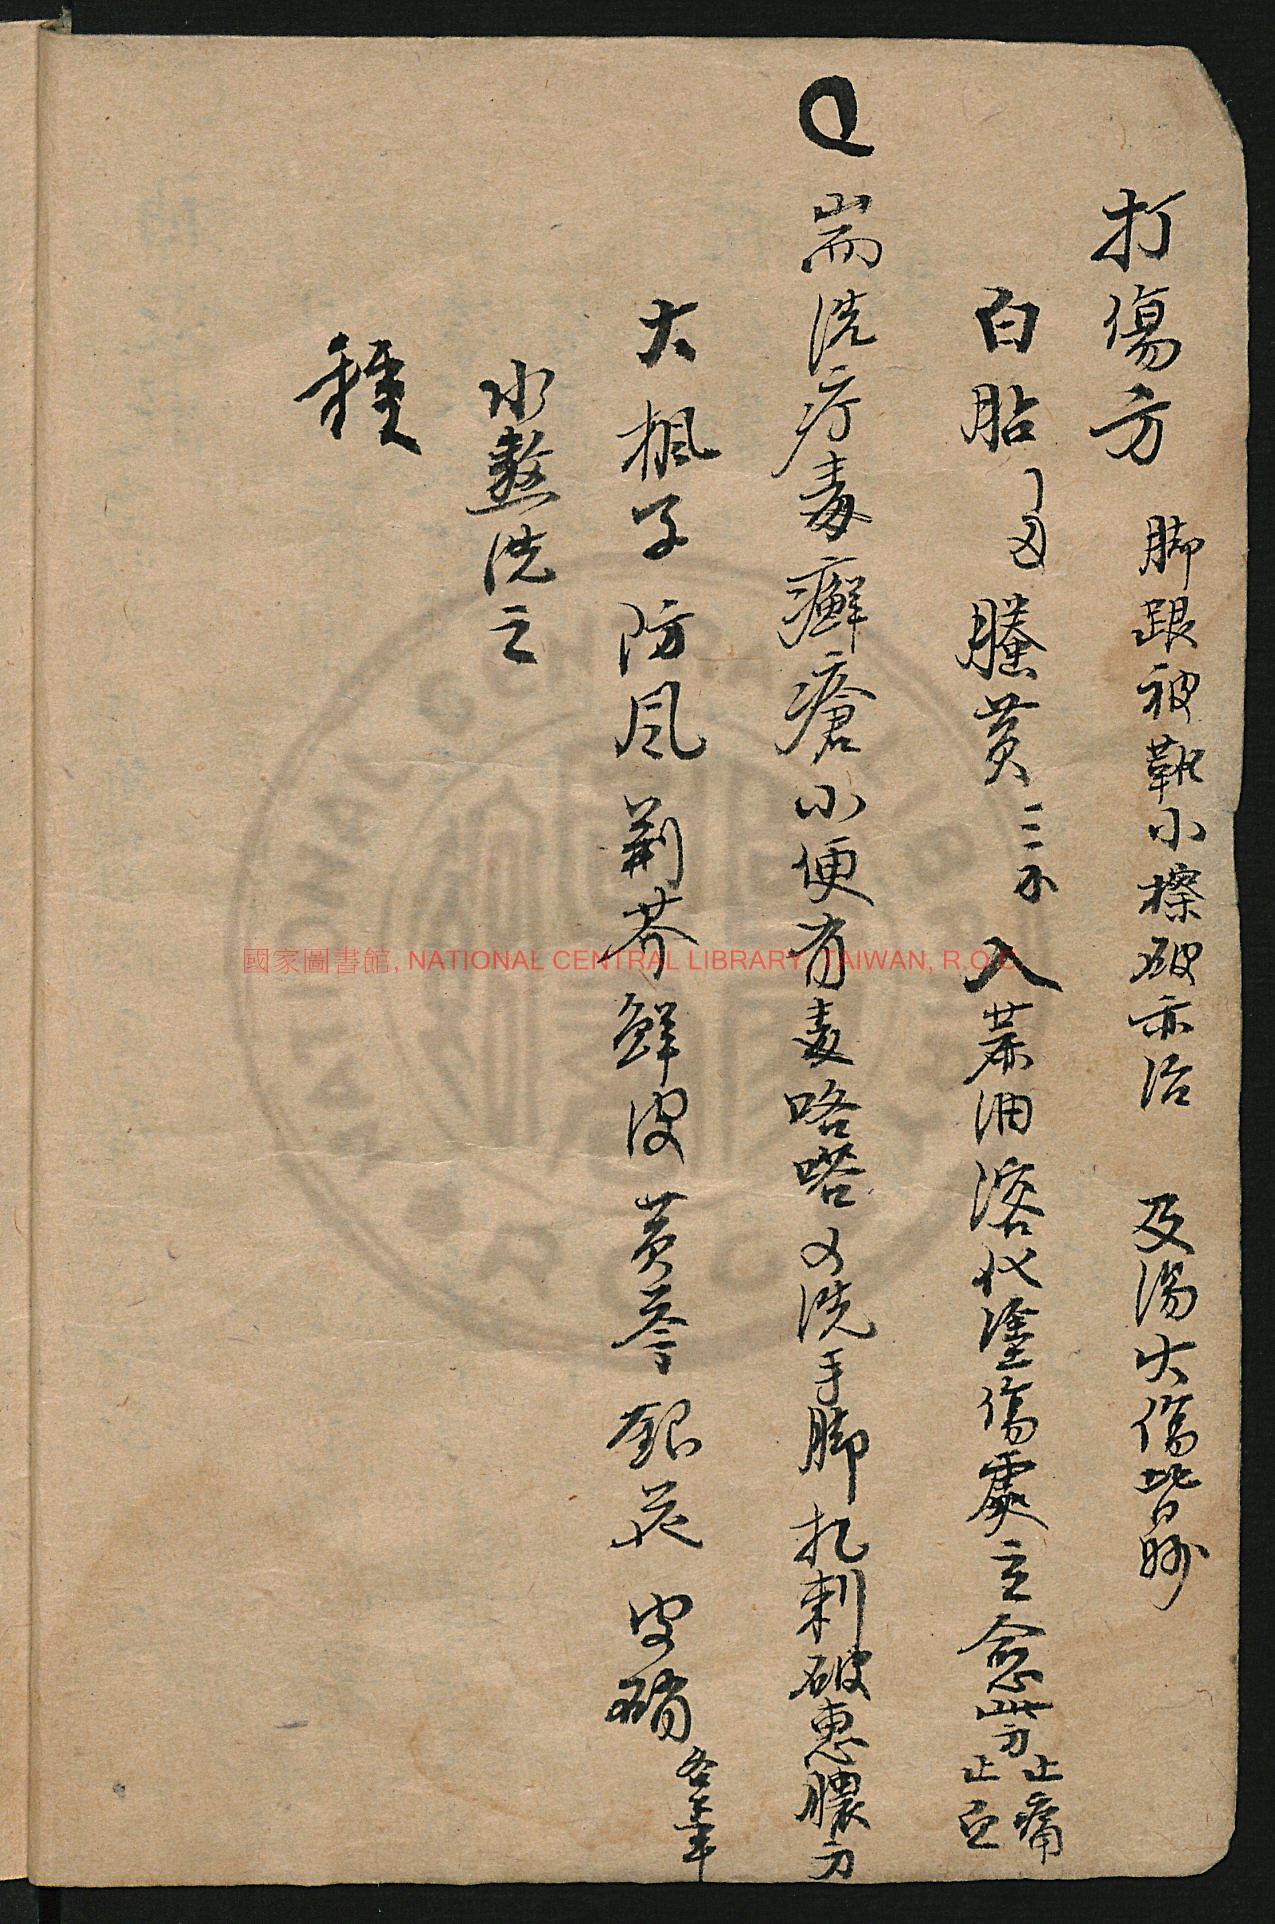 打傷方 脚跟被靴小擦破亦治 及湯火傷皆妙
白占 螣黄三不 入茶油溶化塗傷處立愈此方止痛止血
耑洗疔毒癬瘡小便有麦咯嗒又洗手脚扎刺破患膿方
大楓子 防风 荊芥 鮮皮 黄芩 銀花 皮硝 各
水熬洗之
種
國家圖書館, NATIONAL CENTRAL LIBRARY, TAIWAN, R.O.C